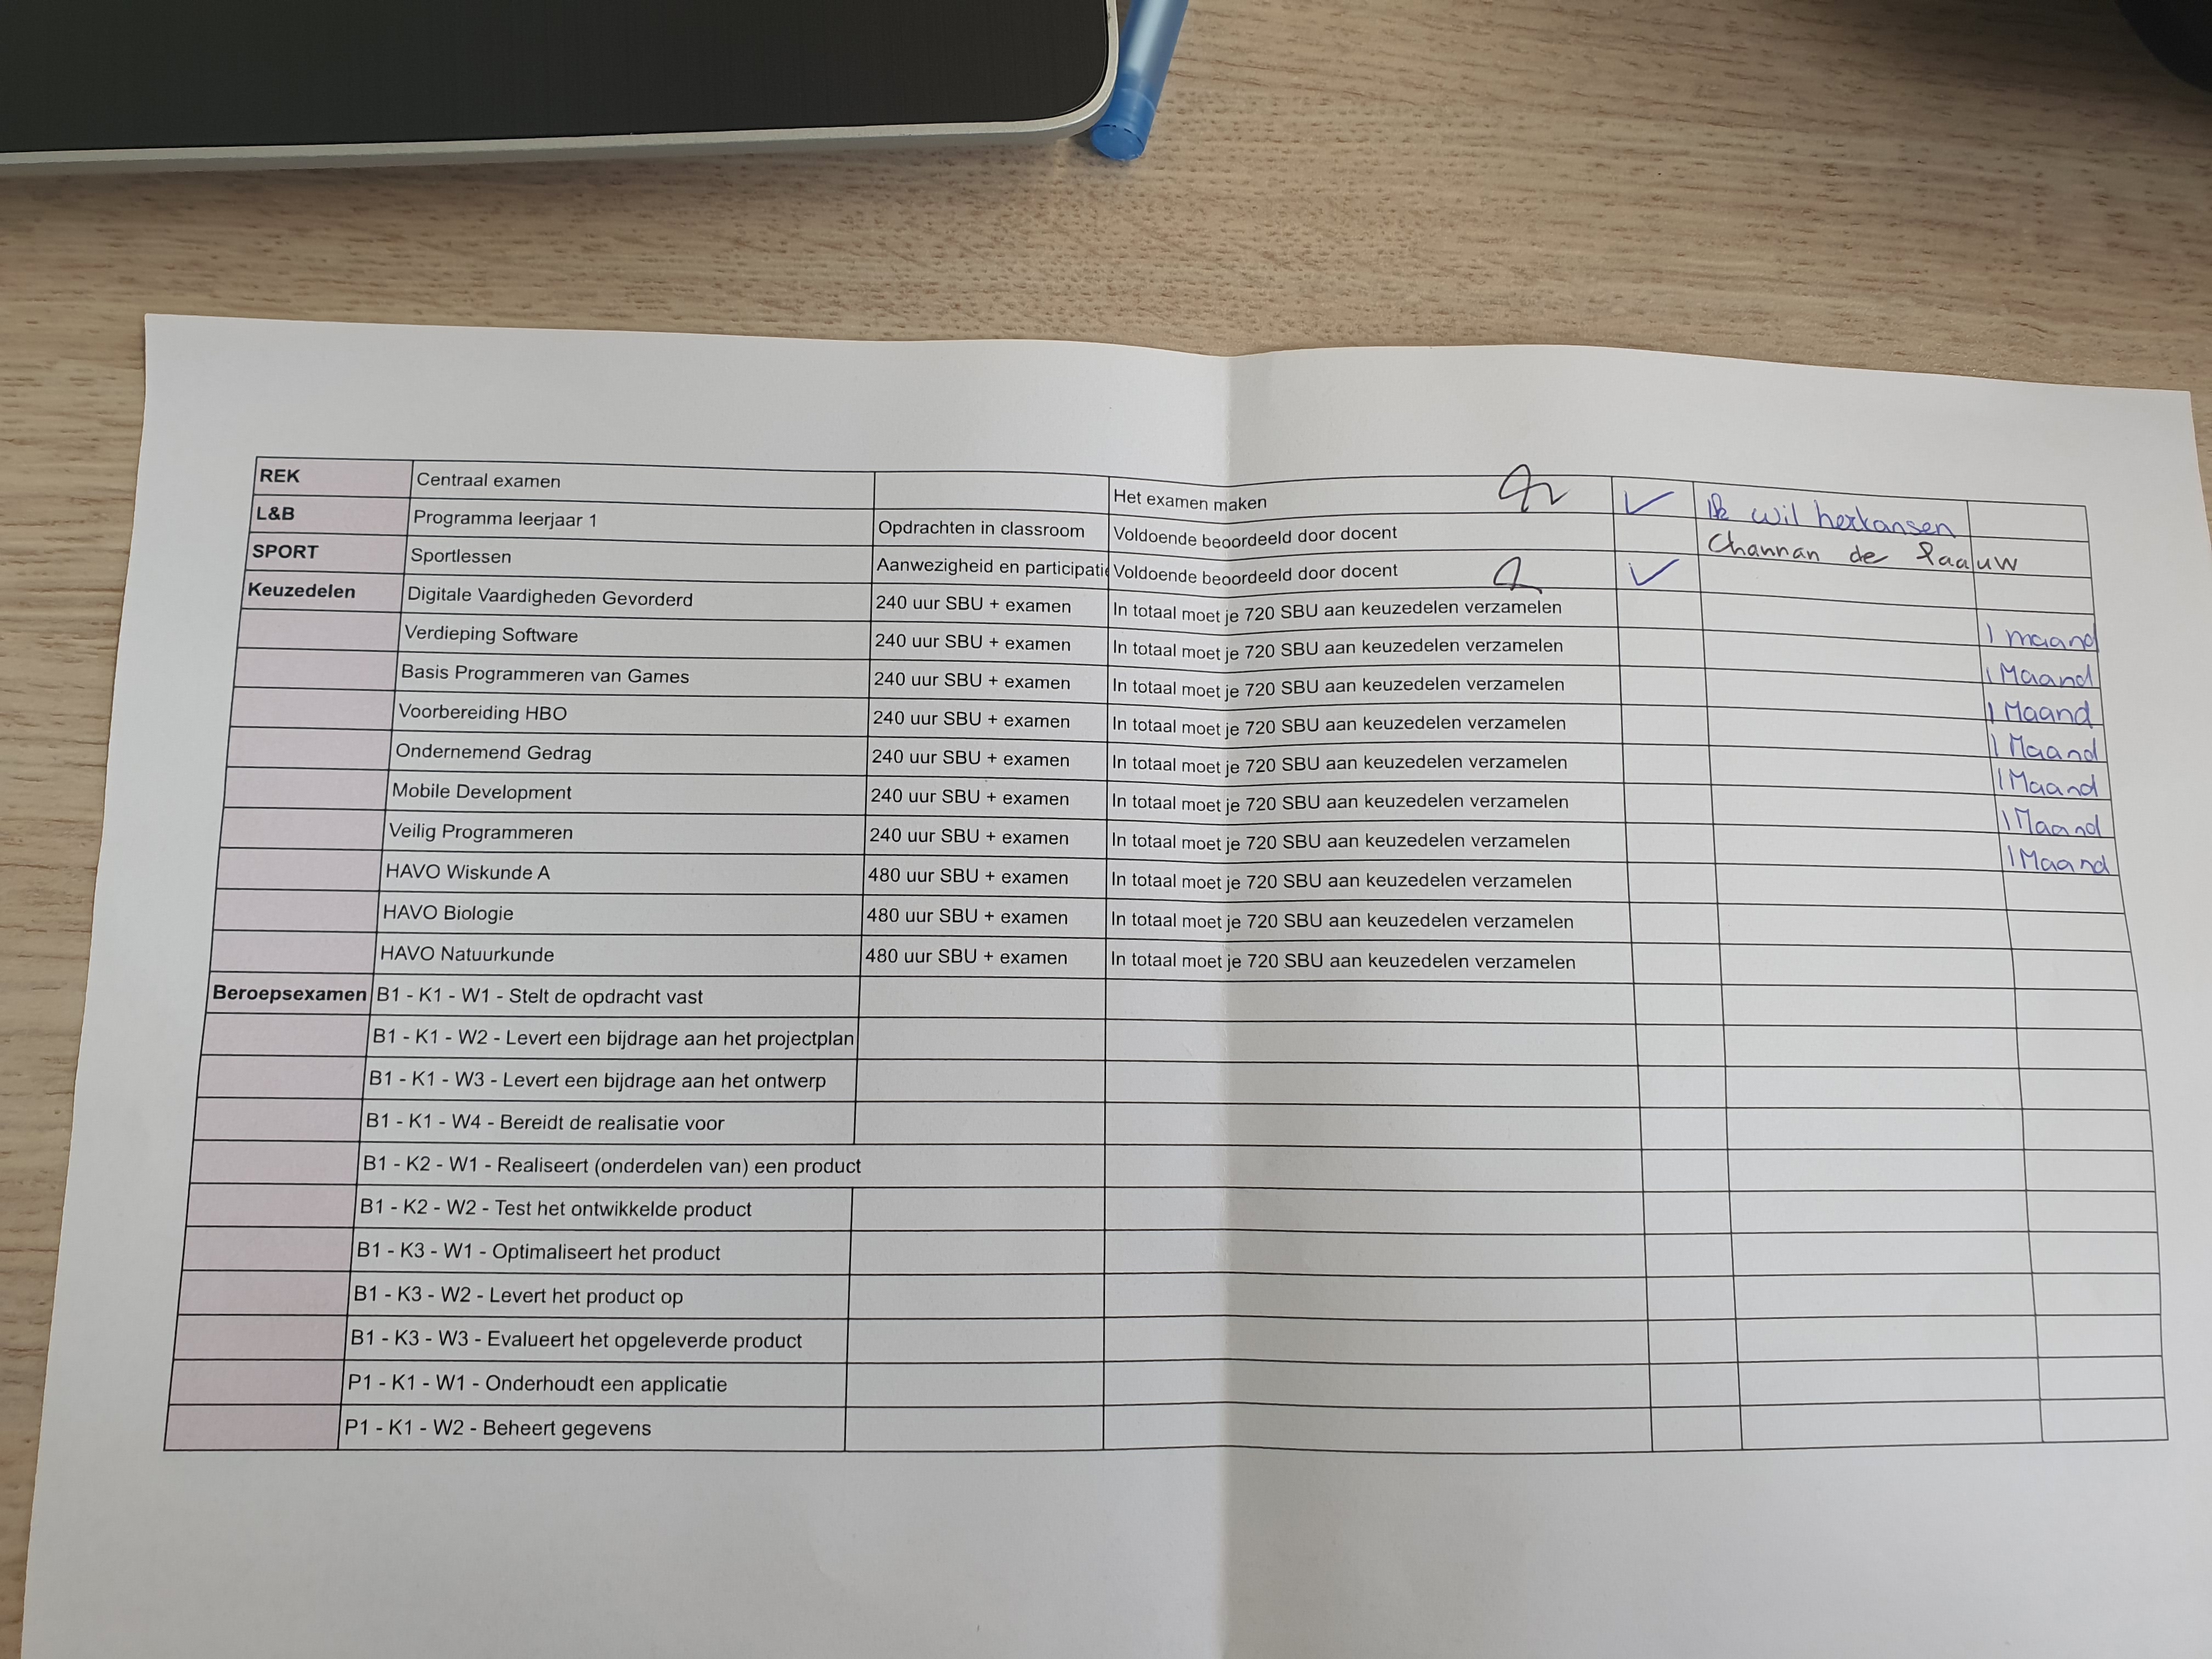 REK Centraal examen Het examen maken Ik wil herkansen
L&B Programma leerjaar 1 Opdrachten in classroom Voldoende beoordeeld door docent Channan de
SPORT Sportlessen Aanwezigheid en participatie Voldoende beoordeeld door docent
Keuzedelen Digitale Vaardigheden Gevorderd 240 uur SBU + examen In totaal moet je 720 SBU aan keuzedelen verzamelen 1 maand
Verdieping Software 240 uur SBU + examen In totaal moet je 720 SBU aan keuzedelen verzamelen 1 Maand
Basis Programmeren van Games 240 uur SBU + examen In totaal moet je 720 SBU aan keuzedelen verzamelen 1 Maand
Voorbereiding HBO 240 uur SBU + examen In totaal moet je 720 SBU aan keuzedelen verzamelen 1 Maand
Ondernemend Gedrag 240 uur SBU + examen In totaal moet je 720 SBU aan keuzedelen verzamelen 1 Maand
Mobile Development 240 uur SBU + examen In totaal moet je 720 SBU aan keuzedelen verzamelen 1 Maand
Veilig Programmeren 240 uur SBU + examen In totaal moet je 720 SBU aan keuzedelen verzamelen 1 Maand
HAVO Wiskunde A 480 uur SBU + examen In totaal moet je 720 SBU aan keuzedelen verzamelen
HAVO Biologie 480 uur SBU + examen In totaal moet je 720 SBU aan keuzedelen verzamelen
HAVO Natuurkunde 480 uur SBU + examen In totaal moet je 720 SBU aan keuzedelen verzamelen
Beroepsexamen B1 - K1 - W1 - Stelt de opdracht vast
B1 - K1 - W2 - Levert een bijdrage aan het projectplan
B1 - K1 - W3 - Levert een bijdrage aan het ontwerp
B1 - K1 - W4 - Bereidt de realisatie voor
B1 - K2 - W1 - Realiseert (onderdelen van) een product
B1 - K2 - W2 - Test het ontwikkelde product
B1 - K3 - W1 - Optimaliseert het product
B1 - K3 - W2 - Levert het product op
B1 - K3 - W3 - Evalueert het opgeleverde product
P1 - K1 - W1 - Onderhoudt een applicatie
P1 - K1 - W2 - Beheert gegevens